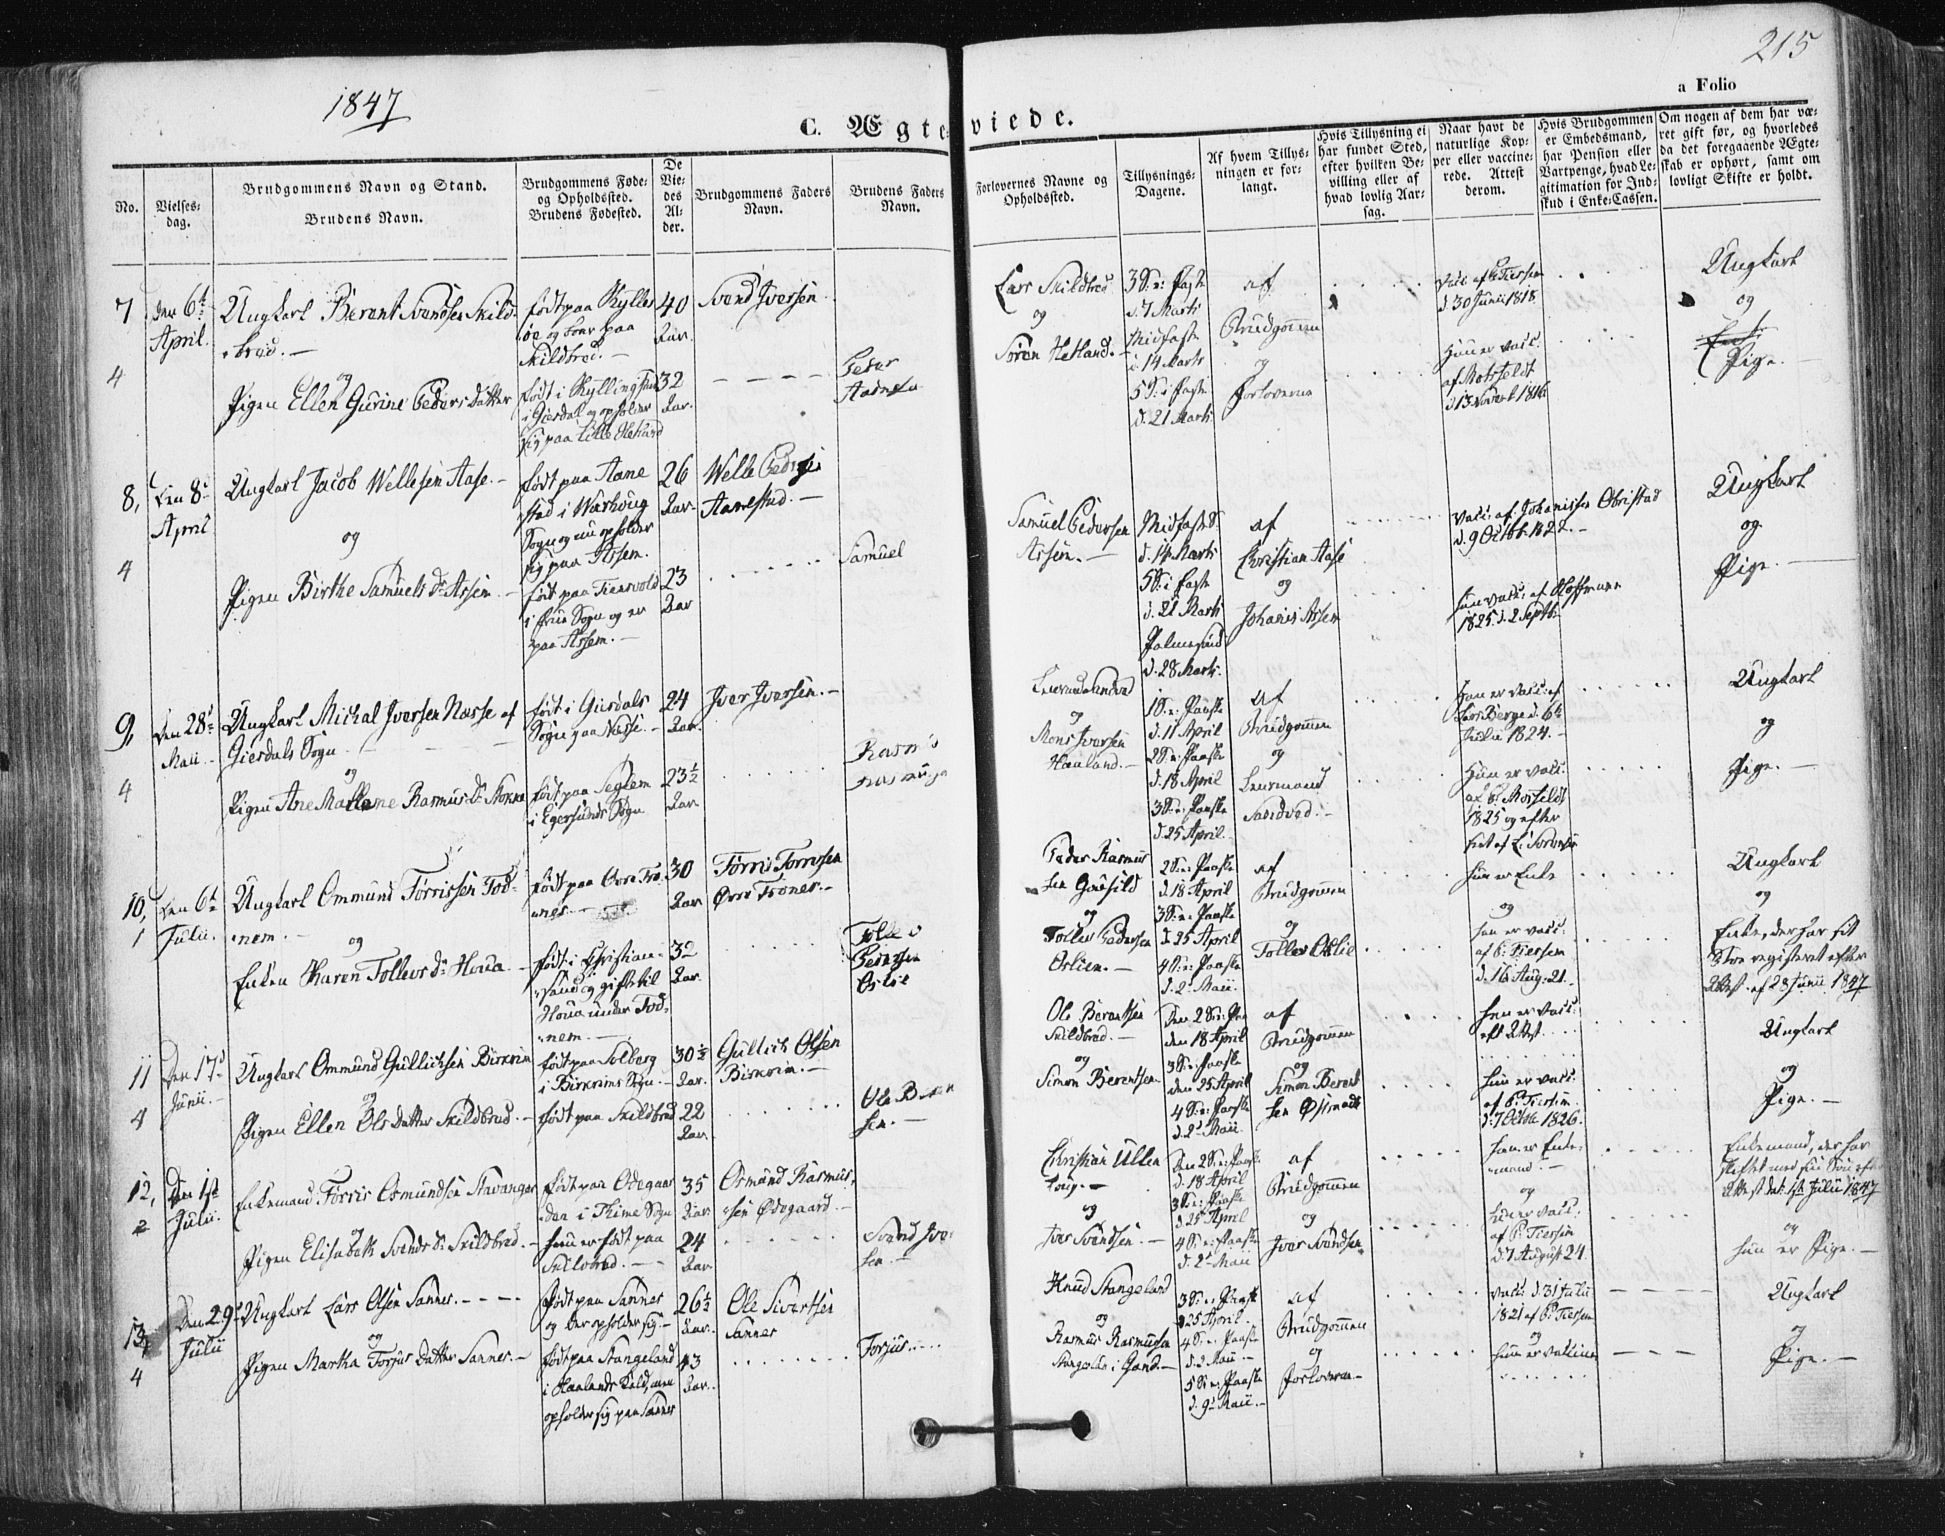 1847
215
a Folio
C. Ægteviede.
No.
Vielses-
dag.
Brudgommens Navn og Stand.
Brudens Navn.
Brudgommens Føde-
og Opholdssted.
Brudens Fødested.
De
Vie-
des
Al-
der.
Brudgommens Faders
Navn.
Brudens Faders
Navn.
Forlovernes Navne og
Opholdssted.
Tillysnings-
Dagene.
Af hvem Tillys-
ningen er for-
langt.
Hvis Tillysning ei
har fundet Sted,
efter hvilken Be-
villing eller af
hvad lovlig Aar-
sag.
Naar havt de
naturlige Kop-
per eller vaccine-
rede. Attest
derom.
Hvis Brudgommen
er Embedsmand,
har Pension eller
Vartpenge, hvad Le-
gitimation for Ind-
skud i Enke-Cassen.
Om nogen af dem har væ-
ret gift før, og hvorledes
da det foregaaende Ægte-
skab er ophørt, samt om
lovligt Skifte er holdt.
7
4
Den 6te
April.
Ungkarl Berent Svendsen Skild-
brød.
og
Pigen Ellen Gurine Peders Datter
født paa
og boer paa
Skildbrød.
født i
i Giesdal og opholder
sig paa Lille Hetland
40
Aar.
32
Aar.
Svend Iversen
Peder
Lars Skildbrød
og
Søren Hetland.
3 S: i Faste
d. 7 Marts
Midfaste
d. 14 Marts
5 S: i Faste
d. 21 Marts
af
Brudgommen
og
Forloverne
vacc: af P. Tiersen
d. 30 Junii 1818
Hun er vacc.
Ungkarl
og
Pige.
8,
4
Den 8de
April
Ungkarl Jacob Wellesen Aase.
og
Pigen Birthe Samuels Dr Assen
født paa Aane
stad i Warhoug
Sogn og nu opholder
sig paa Assem.
født paa
i Frue Sogn og er
paa Assem.
26
Aar.
23
Aar
Welle Pedersen
Aanestad.
Samuel
Samuel Pedersen
Assen.
Midfaste S.
d. 14 Marts
5 S: i Faste
d. 21 Marts
Palmesønd
d. 28 Marts.
af
Christian Aase
og
Johanis Assen
vacc: af Johanissen Obrestad
hun vacc: af Hoffmann
1825 d. 2 Septbr
Ungkarl
og
Pige.
9,
4
Den 28de
Maii
Ungkarl Michal Iversen Næsse af
Giesdals Sogn
og
Pigen Ane Mallene Rasmus Dr Stokke
født i Giesdals
Sogn paa Næsse.
født paa Seglem
i Egersunds Sogn
24
Aar.
23½
Aar.
Iver Iversen.
og
Mons Iversen
Hauland.
1 S: e: Paaske
d. 11 April
2 S: e: Paaske
d. 18 April
3 S: e: Paaske
d. 25 April.
af
Brudgommen
og
Lensmand
Sandved.
Han er vacc: af
Lars Berge d. 6te
Julii 1824.
Hun er vacc.
1825 og efter
Ungkarl
og
Pige.
10,
1
Den 6te
Julii.
Ungkarl Ommund Tørrissen Tod-
nem.
og
Enken Karen Tollevs Dr Houa
født paa Øvre Tro-
nes.
født i Christian-
sand og gift til
Houa under Tod-
nem.
30
Aar
32
Aar.
Tørris Tørrisen
Øvre Troner.
Tollev
Pedersen
Peder Rasmus
sen
og
Tollev Pedersen
Orlien.
2 S: e: Paaske
d. 18 April
3 S: e: Paaske
d. 25 April
4 S: e: Paaske
d. 2 Maii.
af
Brudgommen
og
hun er Enke
og
han er vacc.
af P. Tiersen
d. 16 Aug: 21.
Ungkarl
og
Enke, der har sit
Boe registeret efter
Attest af 28 Junii 1847
11
4
Den 17de
Junii.
Ungkarl Ommund Gullichsen Birkrim
og
Pigen Ellen Ols Datter Skildbrød.
født paa Solberg
i Birkrims Sogn.
født paa Skildbrød
30½
Aar.
22
Aar.
Gullich Olsen
Birkrim.
Ole
sen.
Ole Berentsen
Skildbrød.
og
Simon Berentsen
den 18 April
3 S: e: Paaske
den 25 April
4 S: e: Paaske
d. 2 Maii.
af
Brudgommen
og
Simon Berent
sen
han er vacc:
eft. Attest.
hun er vacc.
af P. Tiersen
d. 7 Octbr 1826.
Ungkarl
og
Pige.
12,
2
Den 1ste
Julii.
Enkemand Tørris Osmundsen Stavanger
og
Pigen Elisabeth Svends Dr Skildbrød.
født paa Ødegaar
den i Thime Sogn
hun er født paa
Skildbrød.
35
Aar.
24
Aar.
Osmund Rasmus-
sen Ødegaard.
Svend Iver-
sen.
Christian
og
Iver Svendsen.
Den 2 S: e: Paaske
d. 18 April
3 S: e: Paaske
d. 25 April
4 S: e: Paaske
d. 2 Maii
af
Brudgommen
og
Iver Svendsen
han er Enke-
mand.
og
hun er vacc.
af P. Tiersen
d. 7 August 24.
Enkemand, der har
skiftet med sin Søn efter
Attest dat. 1ste Julii 1847
og
hun er Pige.
13,
4
Den 29de
Julii
Ungkarl Lars Olsen Sannes.
og
Pigen Martha Torjus Datter Sannes.
født paa Sannes
og der opholder sig.
født paa Stangeland
i Haalands Kald, men
opholder sig paa Sannes
26½
Aar.
43
Aar.
Ole Sivertsen
Sannes
Torjus
Knud Stangeland
og
Rasmus Rasmusen
i Gand.
3 S: e: Paaske
25 April.
4 S: e: Paaske
d. 2 Maii.
5 S: e: Paaske
d. 9 Maii.
af
Brudgommen
og
Forloverne
vacc: d. 31 Julii
1821 af P. Tiersen
og
hun er vaccineret
Ungkarl
og
Pige.